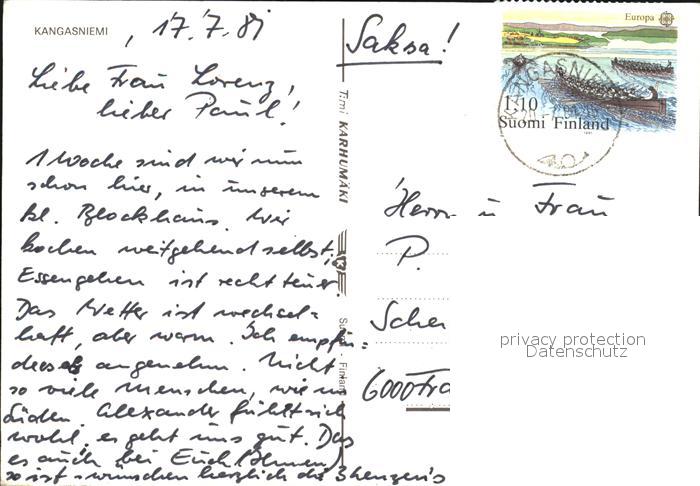 KANGASNIEMI
, 17.7.81
Liebe Frau Lorenz,
lieber Paul!
1 Woche sind wir nun
schon hier, in unserem
kl. Blockhaus. Wir
kochen weitgehend selbst;
Essengehen ist recht teuer.
Das Wetter ist wechsel=
haft, aber warm. Ich empfin=
de es angenehm. Nicht
so viele Menschen, wie im
Süden. Alexander fühlt sich
wohl, es geht uns gut. Das
es auch bei Euch (Ihnen)
so ist - wünschen herzlich die 3
Timi KARHUMÄKI
Suomi - Finland
Saksa!
Europa
1,10
Suomi Finland
1981
KANGASNIEMI
Herrn u Frau
P.
Scher
6000 Fra
privacy protection
Datenschutz